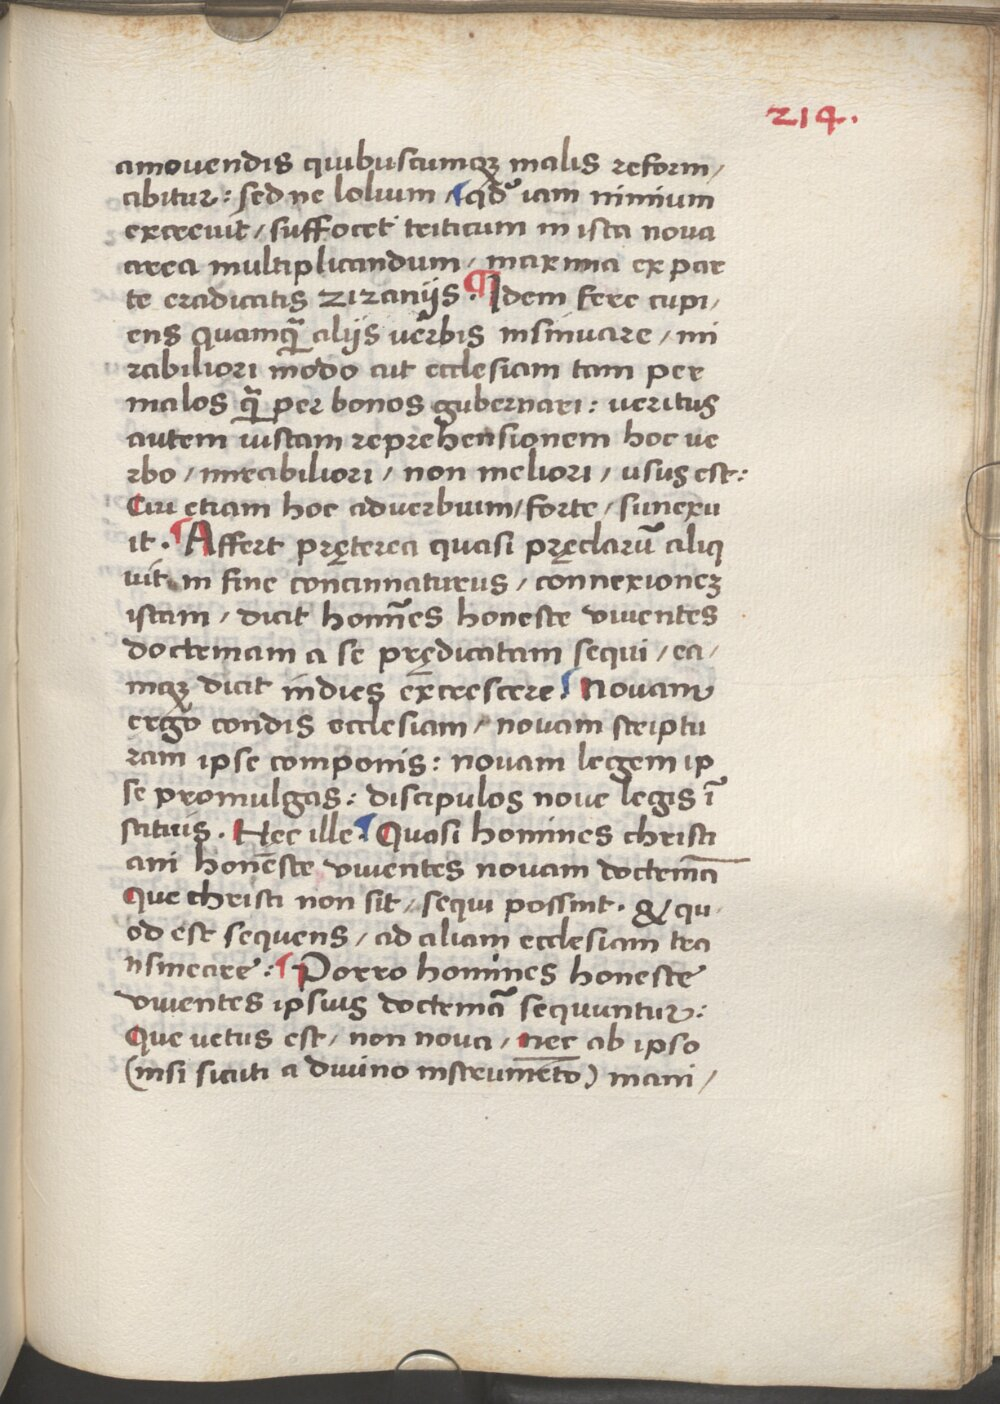 214.
amouendis quibuscumqꝫ malis reform/
abitur: sed ne lolium / qđ iam nimium
excreuit / suffocet triticum in ista noua
area multiplicandum / maxima ex par
te eradicatis zizanijs. ¶ Idem fere cupi/
ens quamq̃ alijs verbis insinuare / mi
rabiliori modo ait ecclesiam tam per
malos q̃ per bonos gubernari: veritus
autem iustam reprehensionem hoc ve
rbo / mirabiliori / non meliori / usus est:
Cui etiam hoc aduerbium / forte / sunexu
it. ¶ Affert pręterea quasi pręclarũ aliq
uit in fine concinnaturus / connexioneꝫ
istam / dicit homĩes honeste viventes
doctrinam a se prędicatam sequi / ea/
mqꝫ dicit indies excrescere. ¶ Nouam
ergo condis ecclesiam / nouam scriptu
ram ipse componis: nouam legem ip
se promulgas: discipulos noue legis ĩ
stituis. Hec ille. ¶ Quasi homines christi
ani honeste viventes nouam doctrinã
Que christi non sit / sequi possint. & qu
od est sequens / ad aliam ecclesiam tra
nsmeare: ¶ Porro homines honeste
viventes ipsius doctrinã sequuntur:
Que uetus est / non noua / nec ab ipso
(nisi sicuti a diuino instrumento) mani /